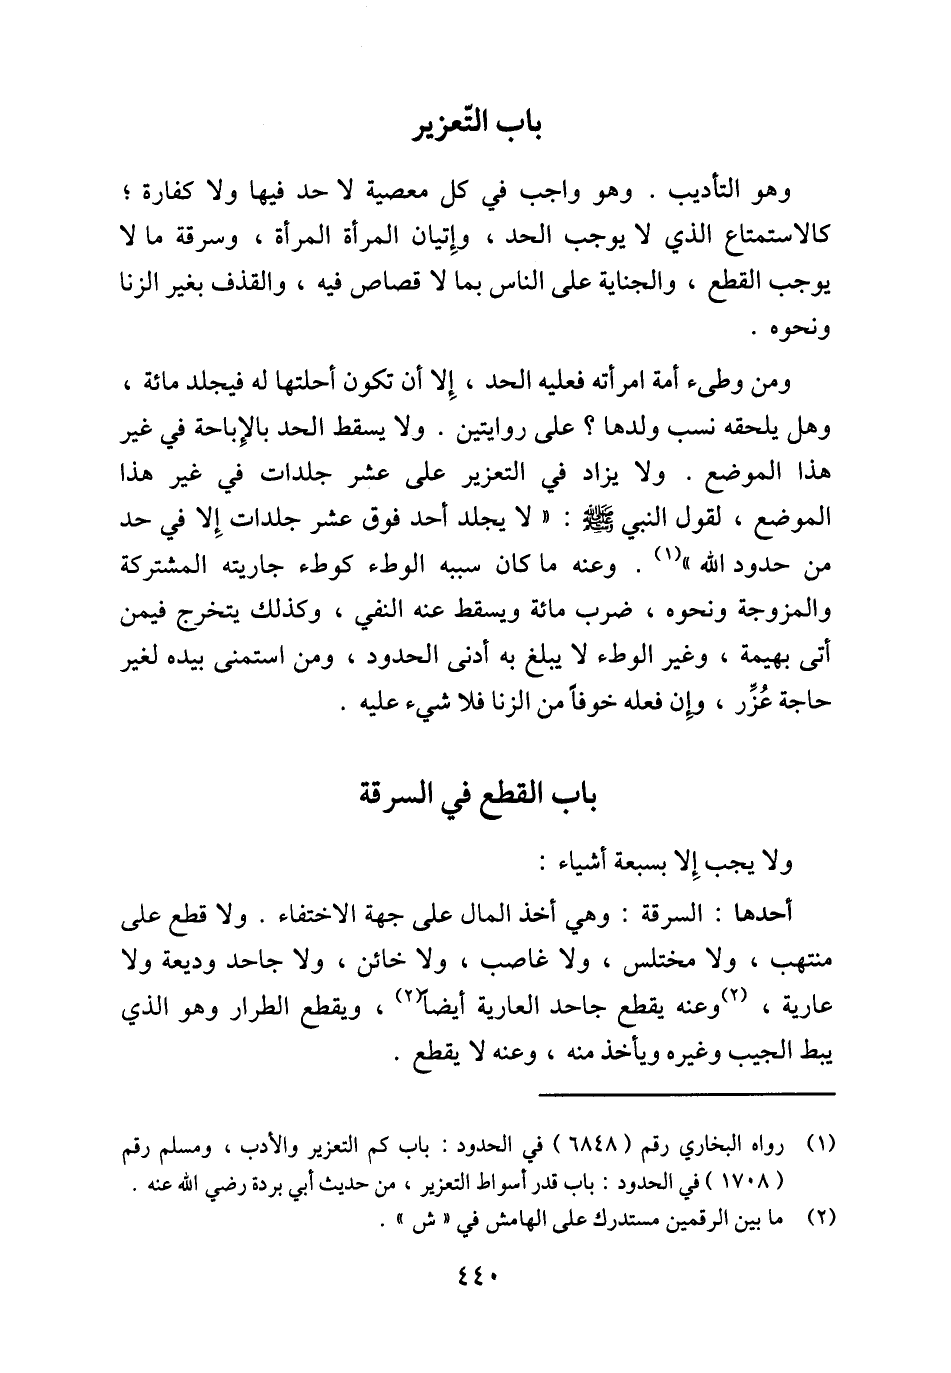 باب التّعزير
وهو التأديب . وهو واجب في كل معصية لا حد فيها ولا كفارة ؛
كالاستمتاع الذي لا يوجب الحد ، وإتيان المرأة المرأة ، وسرقة ما لا
يوجب القطع ، والجناية على الناس بما لا قصاص فيه ، والقذف بغير الزنا
ونحوه .
ومن وطىء أمة امرأته فعليه الحد ، إلا أن تكون أحلتها له فيجلد مائة ،
وهل يلحقه نسب ولدها ؟ على روايتين . ولا يسقط الحد بالإباحة في غير
هذا الموضع . ولا يزاد في التعزير على عشر جلدات في غير هذا
الموضع ، لقول النبي ﷺ : « لا يجلد أحد فوق عشر جلدات إلا في حد
من حدود الله »(١) . وعنه ما كان سببه الوطء كوطء جاريته المشتركة
والمزوجة ونحوه ، ضرب مائة ويسقط عنه النفي ، وكذلك يتخرج فيمن
أتى بهيمة ، وغير الوطء لا يبلغ به أدنى الحدود ، ومن استمنى بيده لغير
حاجة عُزِّر ، وإن فعله خوفاً من الزنا فلا شيء عليه .
باب القطع في السرقة
ولا يجب إلا بسبعة أشياء :
أحدها : السرقة : وهي أخذ المال على جهة الاختفاء . ولا قطع على
منتهب ، ولا مختلس ، ولا غاصب ، ولا خائن ، ولا جاحد وديعة ولا
عارية ، (٢)وعنه يقطع جاحد العارية أيضاً(٢) ، ويقطع الطرار وهو الذي
يبط الجيب وغيره ويأخذ منه ، وعنه لا يقطع .
(١) رواه البخاري رقم ( ٦٨٤٨ ) في الحدود : باب كم التعزير والأدب ، ومسلم رقم
( ١٧٠٨ ) في الحدود : باب قدر أسواط التعزير ، من حديث أبي بردة رضي الله عنه .
(٢) ما بين الرقمين مستدرك على الهامش في « ش » .
٤٤٠